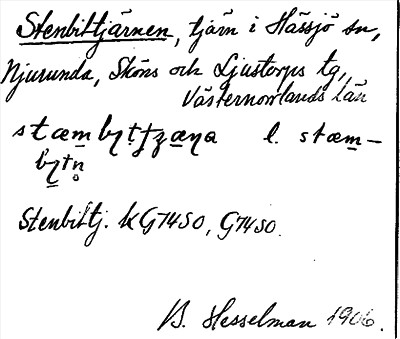 Stenbittjärnen, tjärn i Hässjö sn,
Njurunda, Sköns och Ljustorps tg,
Västernorrlands län
l. stæm-
Stenbittj. kG74SO, G74SO.
B. Hesselman 1906.